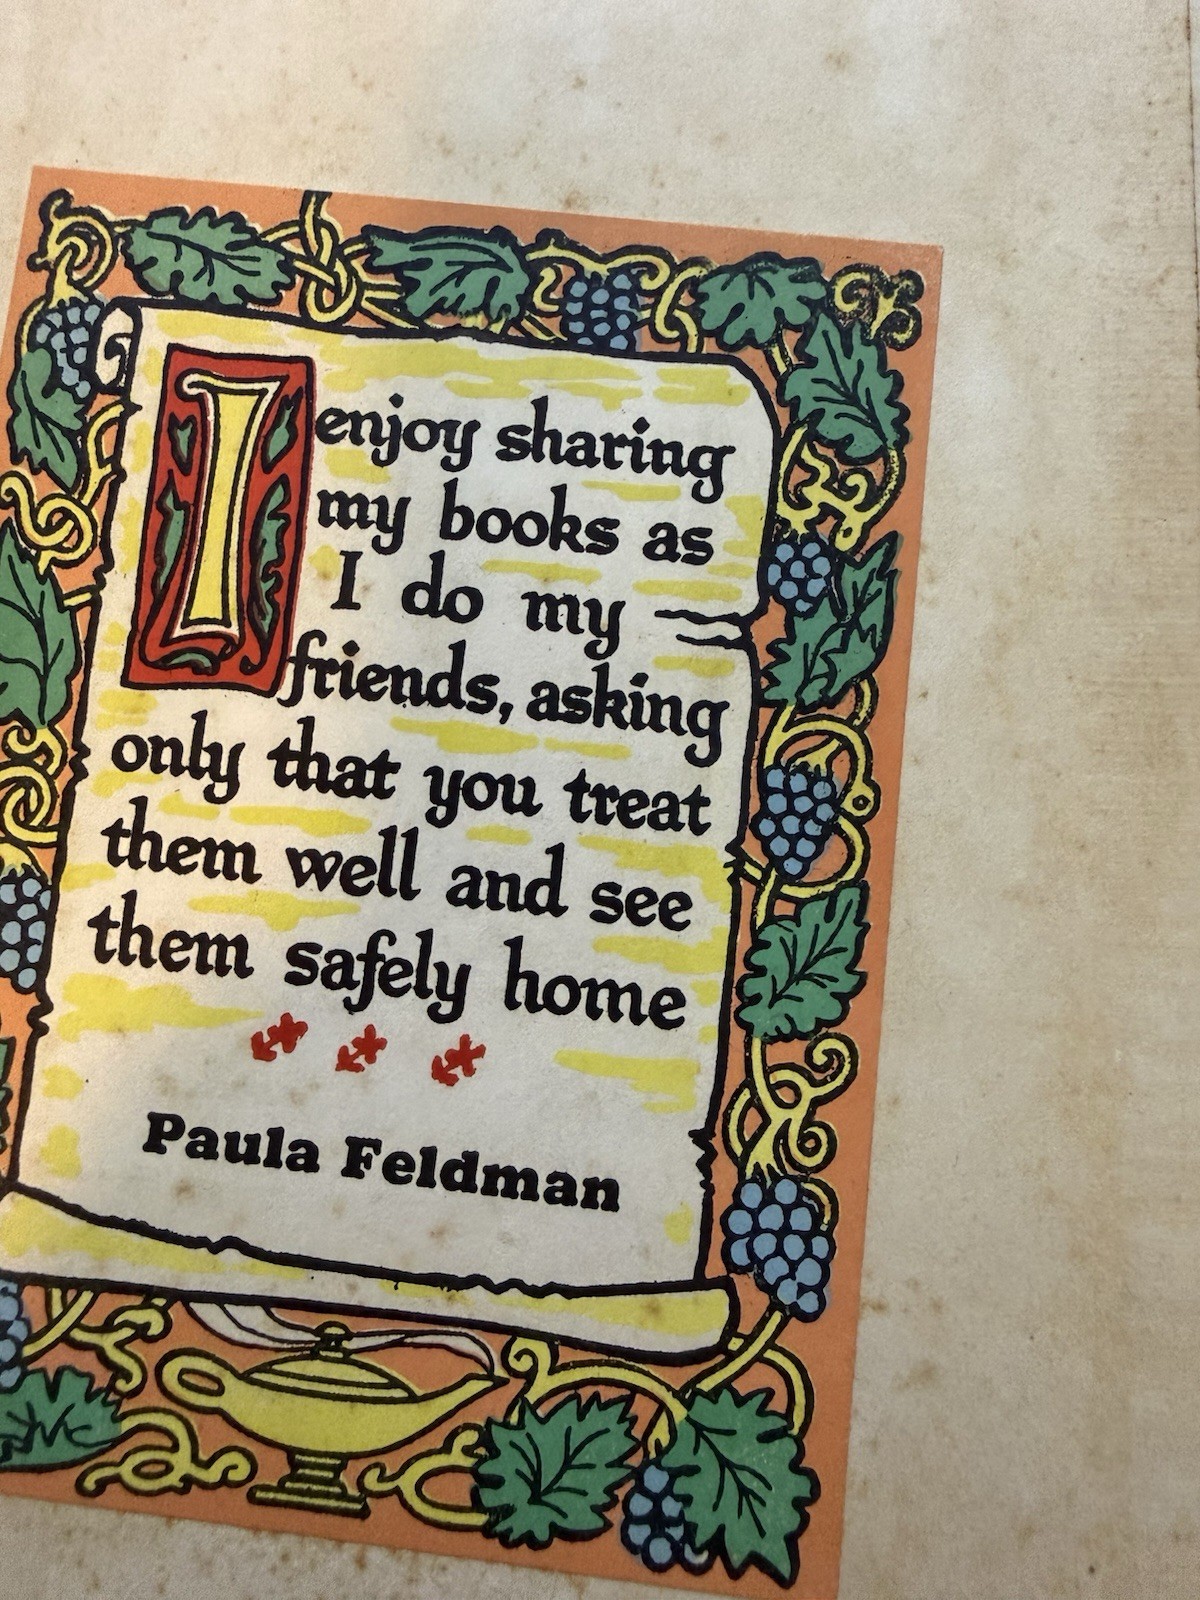 I enjoy sharing
my books as
I do my
friends, asking
only that you treat
them well and see
them safely home
Paula Feldman